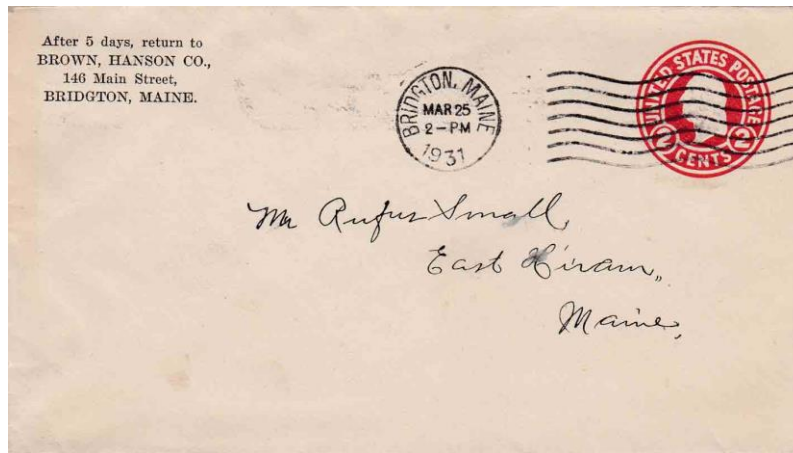 After 5 days, return to
BROWN, HANSON CO.,
146 Main Street,
BRIDGTON, MAINE.
BRIDGTON, MAINE
MAR 25
2-PM
1931
UNITED STATES POSTAGE
2 CENTS 2
Mr Rufus Small,
East Hiram,,
Maine,